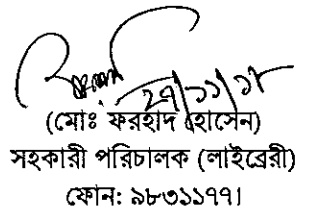 ২৭/১১/১৮
(মোঃ ফরহাদ হোসেন)
সহকারী পরিচালক (লাইব্রেরী)
ফোন: ৯৮৩১১৭৭।